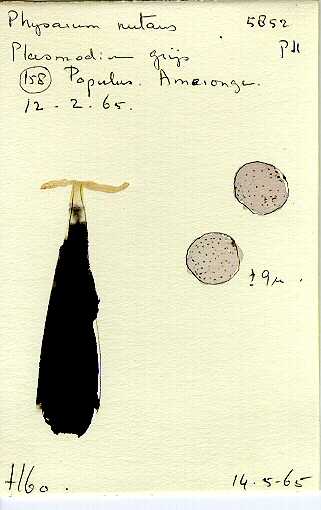 Physarum nutans 5852
Plasmodium grijs PH
158 Populus. Amerongen.
12-2-65.
± 9µ.
H60. 14-5-65